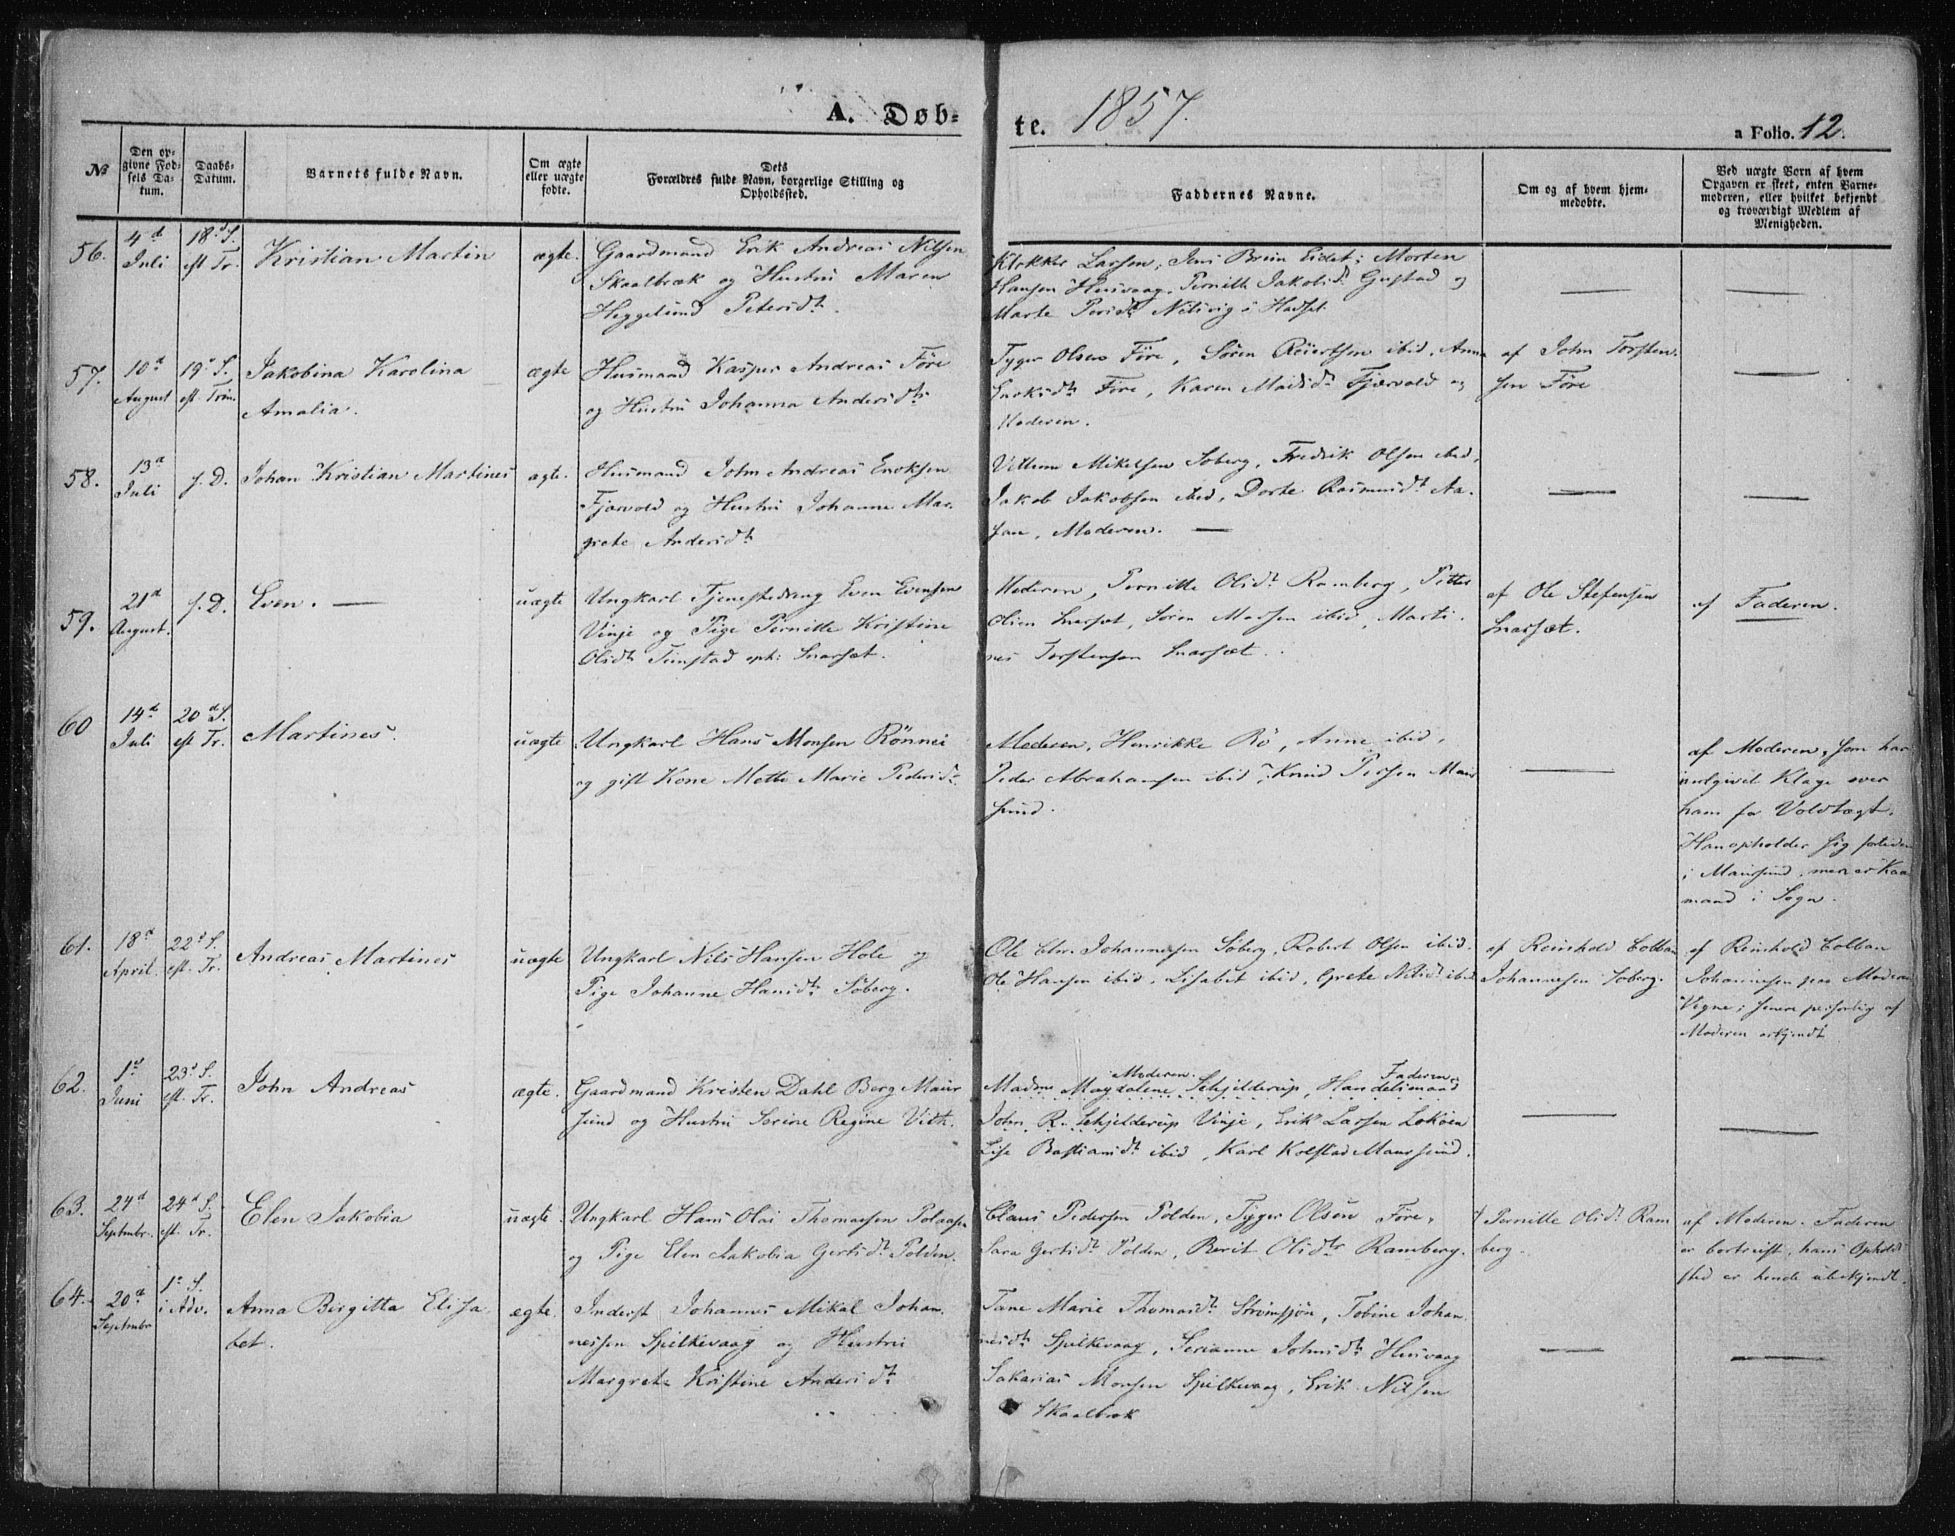 A. Døb-
te. 1857.
a Folio. 12.
№
Den opgivne Fødsels Datum.
Daabs-Datum.
Barnets fulde Navn.
Om ægte eller uægte fødte.
Dets Forældres fulde Navn, borgerlige Stilling og Opholdssted.
Faddernes Navne.
Om og af hvem hjemmedøbte.
Ved uægte Børn af hvem Opgaven er skeet, enten Barnemoderen, eller hvilket bekjendt og troværdigt Medlem af Menigheden.
56.
4d Juli
18d S. eft Tr.
Kristian Martin
ægte.
Gaardmand Erik Andreas Nilsen
Skaalbræk og Hustru Maren
Heggelund Petersdt.
Klokker Larsen, Jens Bruun Eidet, Morten
Hansen Husvaag, Pernille Jakobsdt Gustad og
Marte Persdt i Hadsel.
57.
10d August
19d S. eft Trin.
Jakobina Karolina
Amalia.
ægte
Husmand Kasper Andreas Före
og Hustru Johanna Andersdt.
Tyger Olsen Före, Sören ibid, Anna
Före, Karen Fjærvold og
Moderen.
af John Torsten-
sen Före
58.
13d Juli
s. D.
Johan Kristian Martines
ægte.
Husmand John Andreas Enoksen
Fjærvold og Hustru Johanne Mar-
grete Andersdt
Villum Mikelsen Söberg, Fredrik Olsen ibid,
Jakob Jakobsen ibid, Dorte Rasmusdt Aa-
san, Moderen.
59.
21d August.
s. D.
Even.
uægte
Ungkarl Tjenestedreng Even Evensen
Vinje og Pige Pernille Kristine
Olsdt Timstad oph: Snarset.
Moderen, Pernille Olsdt Ramberg, Petter
Olsen Snarset, Sören Madsen ibid, Marti-
nes Torstensen Snarset.
af Ole Stefensen
Snarset.
af Faderen.
60
14d Juli
20d S. eft Tr.
Martines.
uægte
Ungkarl Hans Monsen Rönnei
og gift Kone Mette Marie Pedersdt
Moderen, Henrikke Rö, Anne ibid,
Peder Abrahamsen ibid, Knud Persen Maur
sund.
af Moderen, som har
indgivet Klage over
ham for Voldtægt.
Han opholder sig fortiden
i Maursund, men er Kaa
mand i Sogn.
61.
18d April.
22d S. eft. Tr.
Andreas Martines
uægte
Ungkarl Nils Hansen Hole og
Pige Johanne Hansdt Söberg.
Ole Chr. Johannesen Söberg, Robert Olsen ibid.
Ole Hansen ibid, Lisabet ibid, Grete Nilsdt ibid
af Reinhold Colban
Johannesen Söberg.
af Reinhold Colban
Johannesen paa Moderens
Vegne; senere personlig af
Moderen erkjendt
62.
1d Juni
23d S. eft. Tr.
John Andreas
ægte.
Gaardmand Kristen Dahl Berg Maur
sund og Hustru Serine Regine Vith.
Moderen. Faderen
Madme Magdalene Schjelderup, Handelsmand
John R. Schjelderup Vinje, Erik Larsen Loköen
Lise Bastiansdt ibid, Karl Kolstad Maursund.
63.
24d Septmbr.
24d S. eft. Tr.
Elen Jakobia
uægte
Ungkarl Hans Olai Thomassen
og Pige Elen Jakobia Gertsdt Polden.
Claus Pedersen Polden, Tyger Olsen Före,
Sara Gertsdt Polden, Berit Olsdtr Ramberg.
Pernille Olsdt Ram
berg.
af Moderen. Faderen
er bortreist, hans Opholds
sted er hende ubekjendt.
64.
20d Septmbr
1e S. i Adv.
Anna Birgitta Elisa
bet.
ægte.
Inderst Johannes Mikal Johan-
nessen Spilkevaag og Hustru
Margrete Kristine Andersdt
Jane Marie Thomasdt Strömsjön, Tobine Johan
nesdt Spilkevaag, Serianne Johnsdt Husvaag
Sakarias Monsen Spilkevaag, Erik Nilsen
Skaalbræk